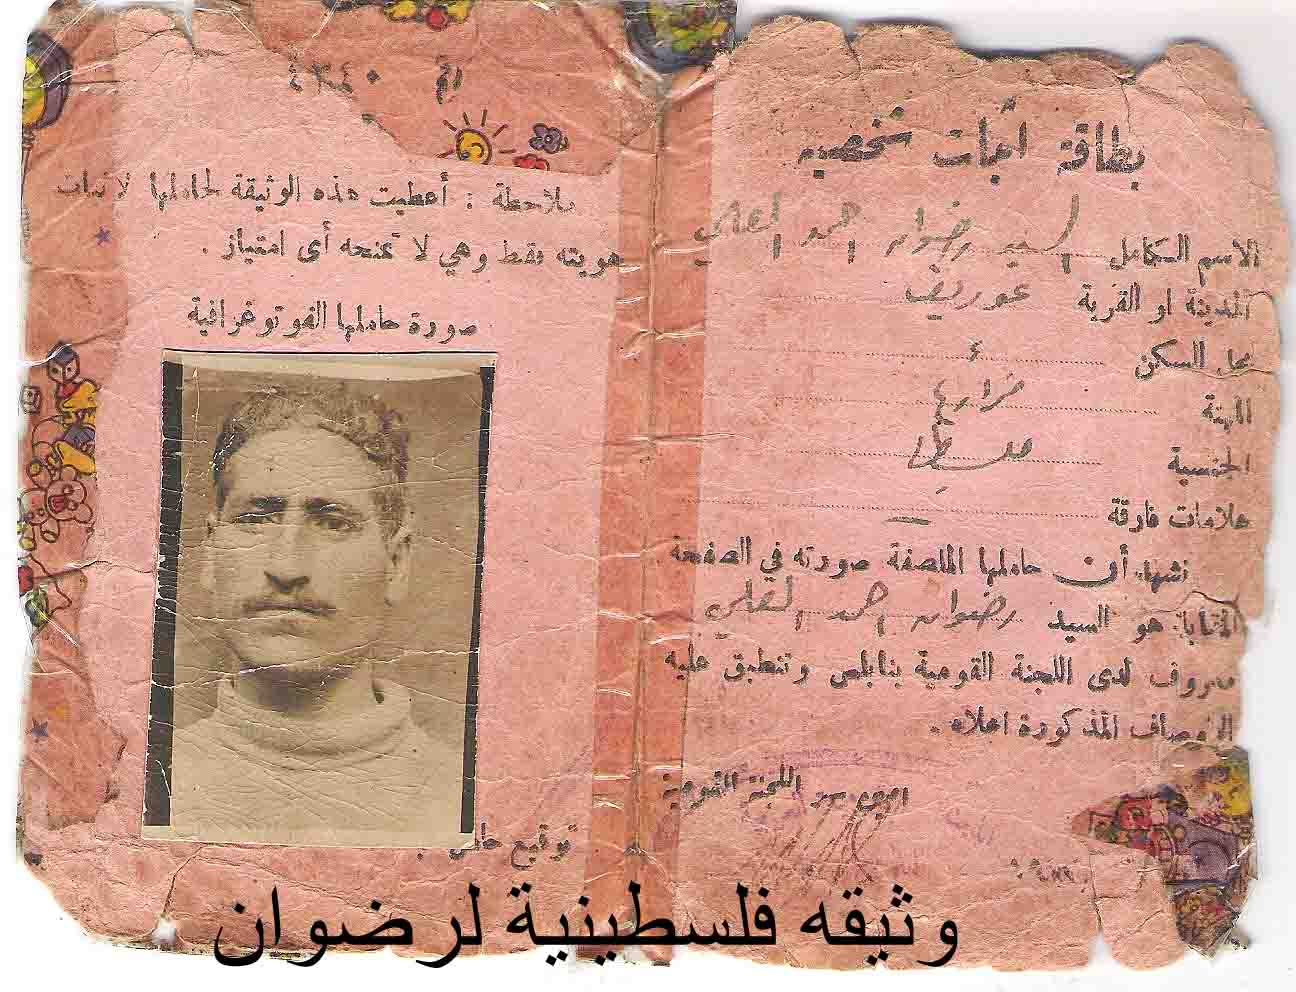 بطاقة أثبات شخصية
الاسم الكامل السيد رضوان احمد العلي
المدينة او القرية عوريف
محل السكن
المهنة
الجنسية
علامات فارقة —
نشهد أن حاملها الملصقة صورته في الصفحة
المقابلة هو السيد رضوان احمد العلي
معروف لدى اللجنة القومية بنابلس وتنطبق عليه
الاوصاف المذكورة اعلاه .
اللجنة القومية
رقم ٤٣٤٠
ملاحظة : أعطيت هذه الوثيقة لحاملها لاثبات
هويته فقط وهي لا تمنحه أى امتياز .
صورة حاملها الفوتوغرافية
توقيع حاملها :
وثيقه فلسطينية لرضوان